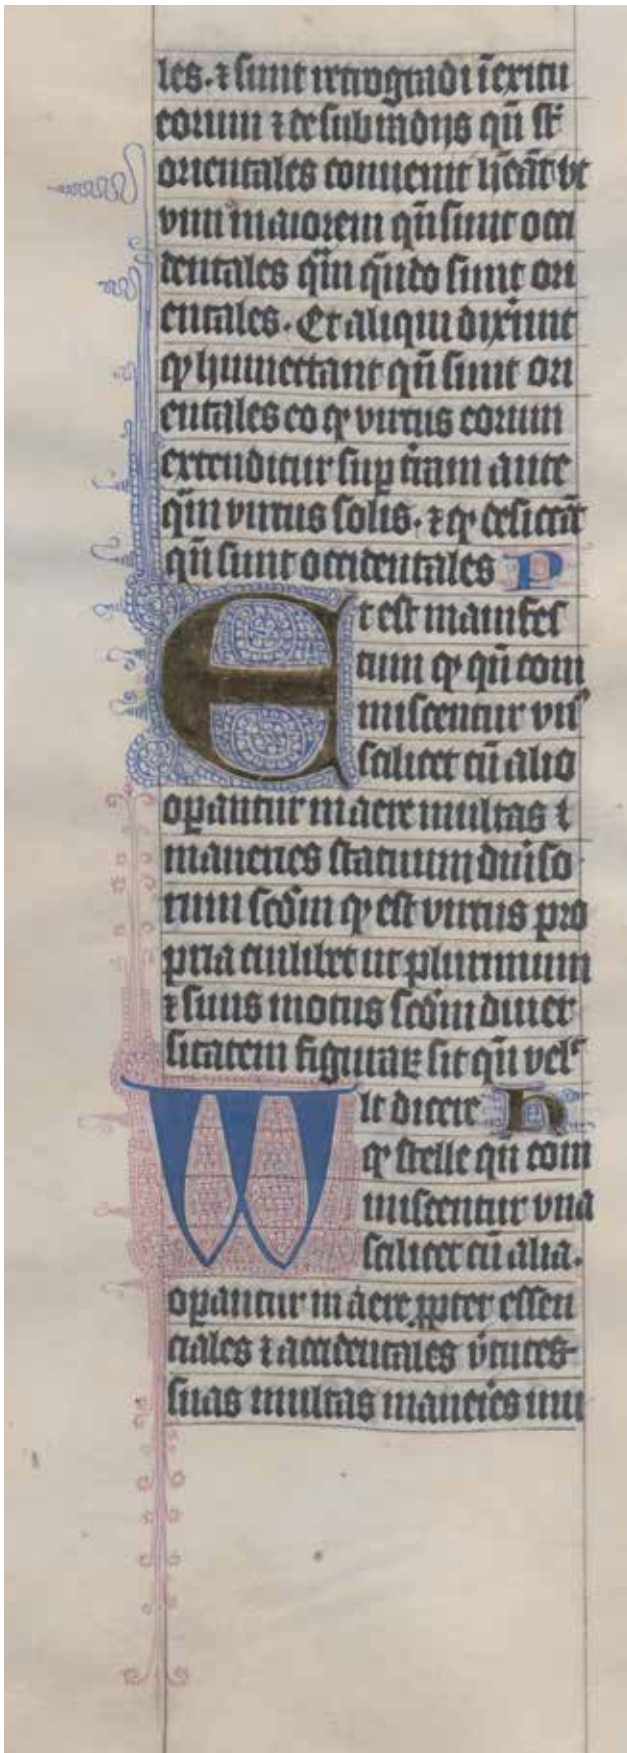 les. ⁊ sunt retrogradi ī exitu
eorum ⁊ de subradijs qn̄ st̄
orientales conueniunt
vnū maiorem qn̄ sunt occi
dentales qm̄ qn̄do sunt ori
entales. Et aliqui dixerunt
ꝙ humectant qn̄ sunt ori
entales eo ꝙ virtus eorum
extenditur sup terram ante
qm̄ virtus solis. ⁊ ꝙ desiccāt
qn̄ sunt occidentales P
Et est manifes
tum ꝙ qn̄ com
miscentur vn̄ꝰ
scilicet cū alio
oꝑantur in aere multas
maneries statuum diuiso
rum scdm̄ ꝙ est virtus pro
pria cuilibet ut plurimum
⁊ suus motus scdm̄ diuer
sitatem figuraꝝ sit qn̄ vel
Wlt dicere h
ꝙ stelle qn̄ com
miscentur vna
scilicet cū alia.
oꝑantur in aere ꝓpter essen
ciales ⁊ accidentales v̄tutes
suas multas maneries mu